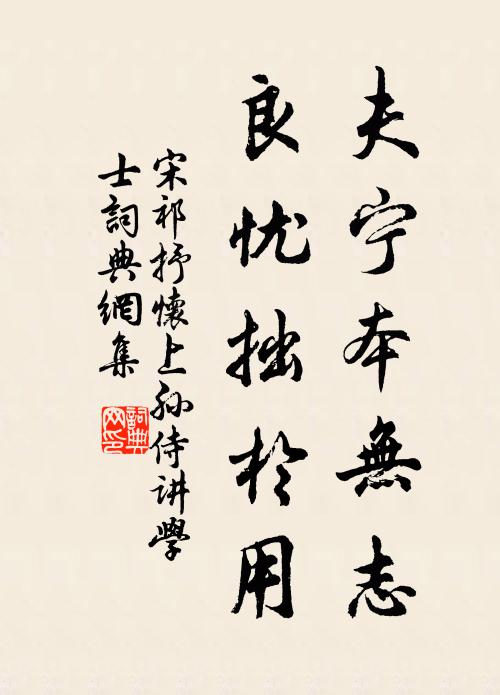 夫宁本無志
良忧拙於用
宋祁抒懷上孙侍讲學
士詞典網集
詞典网印